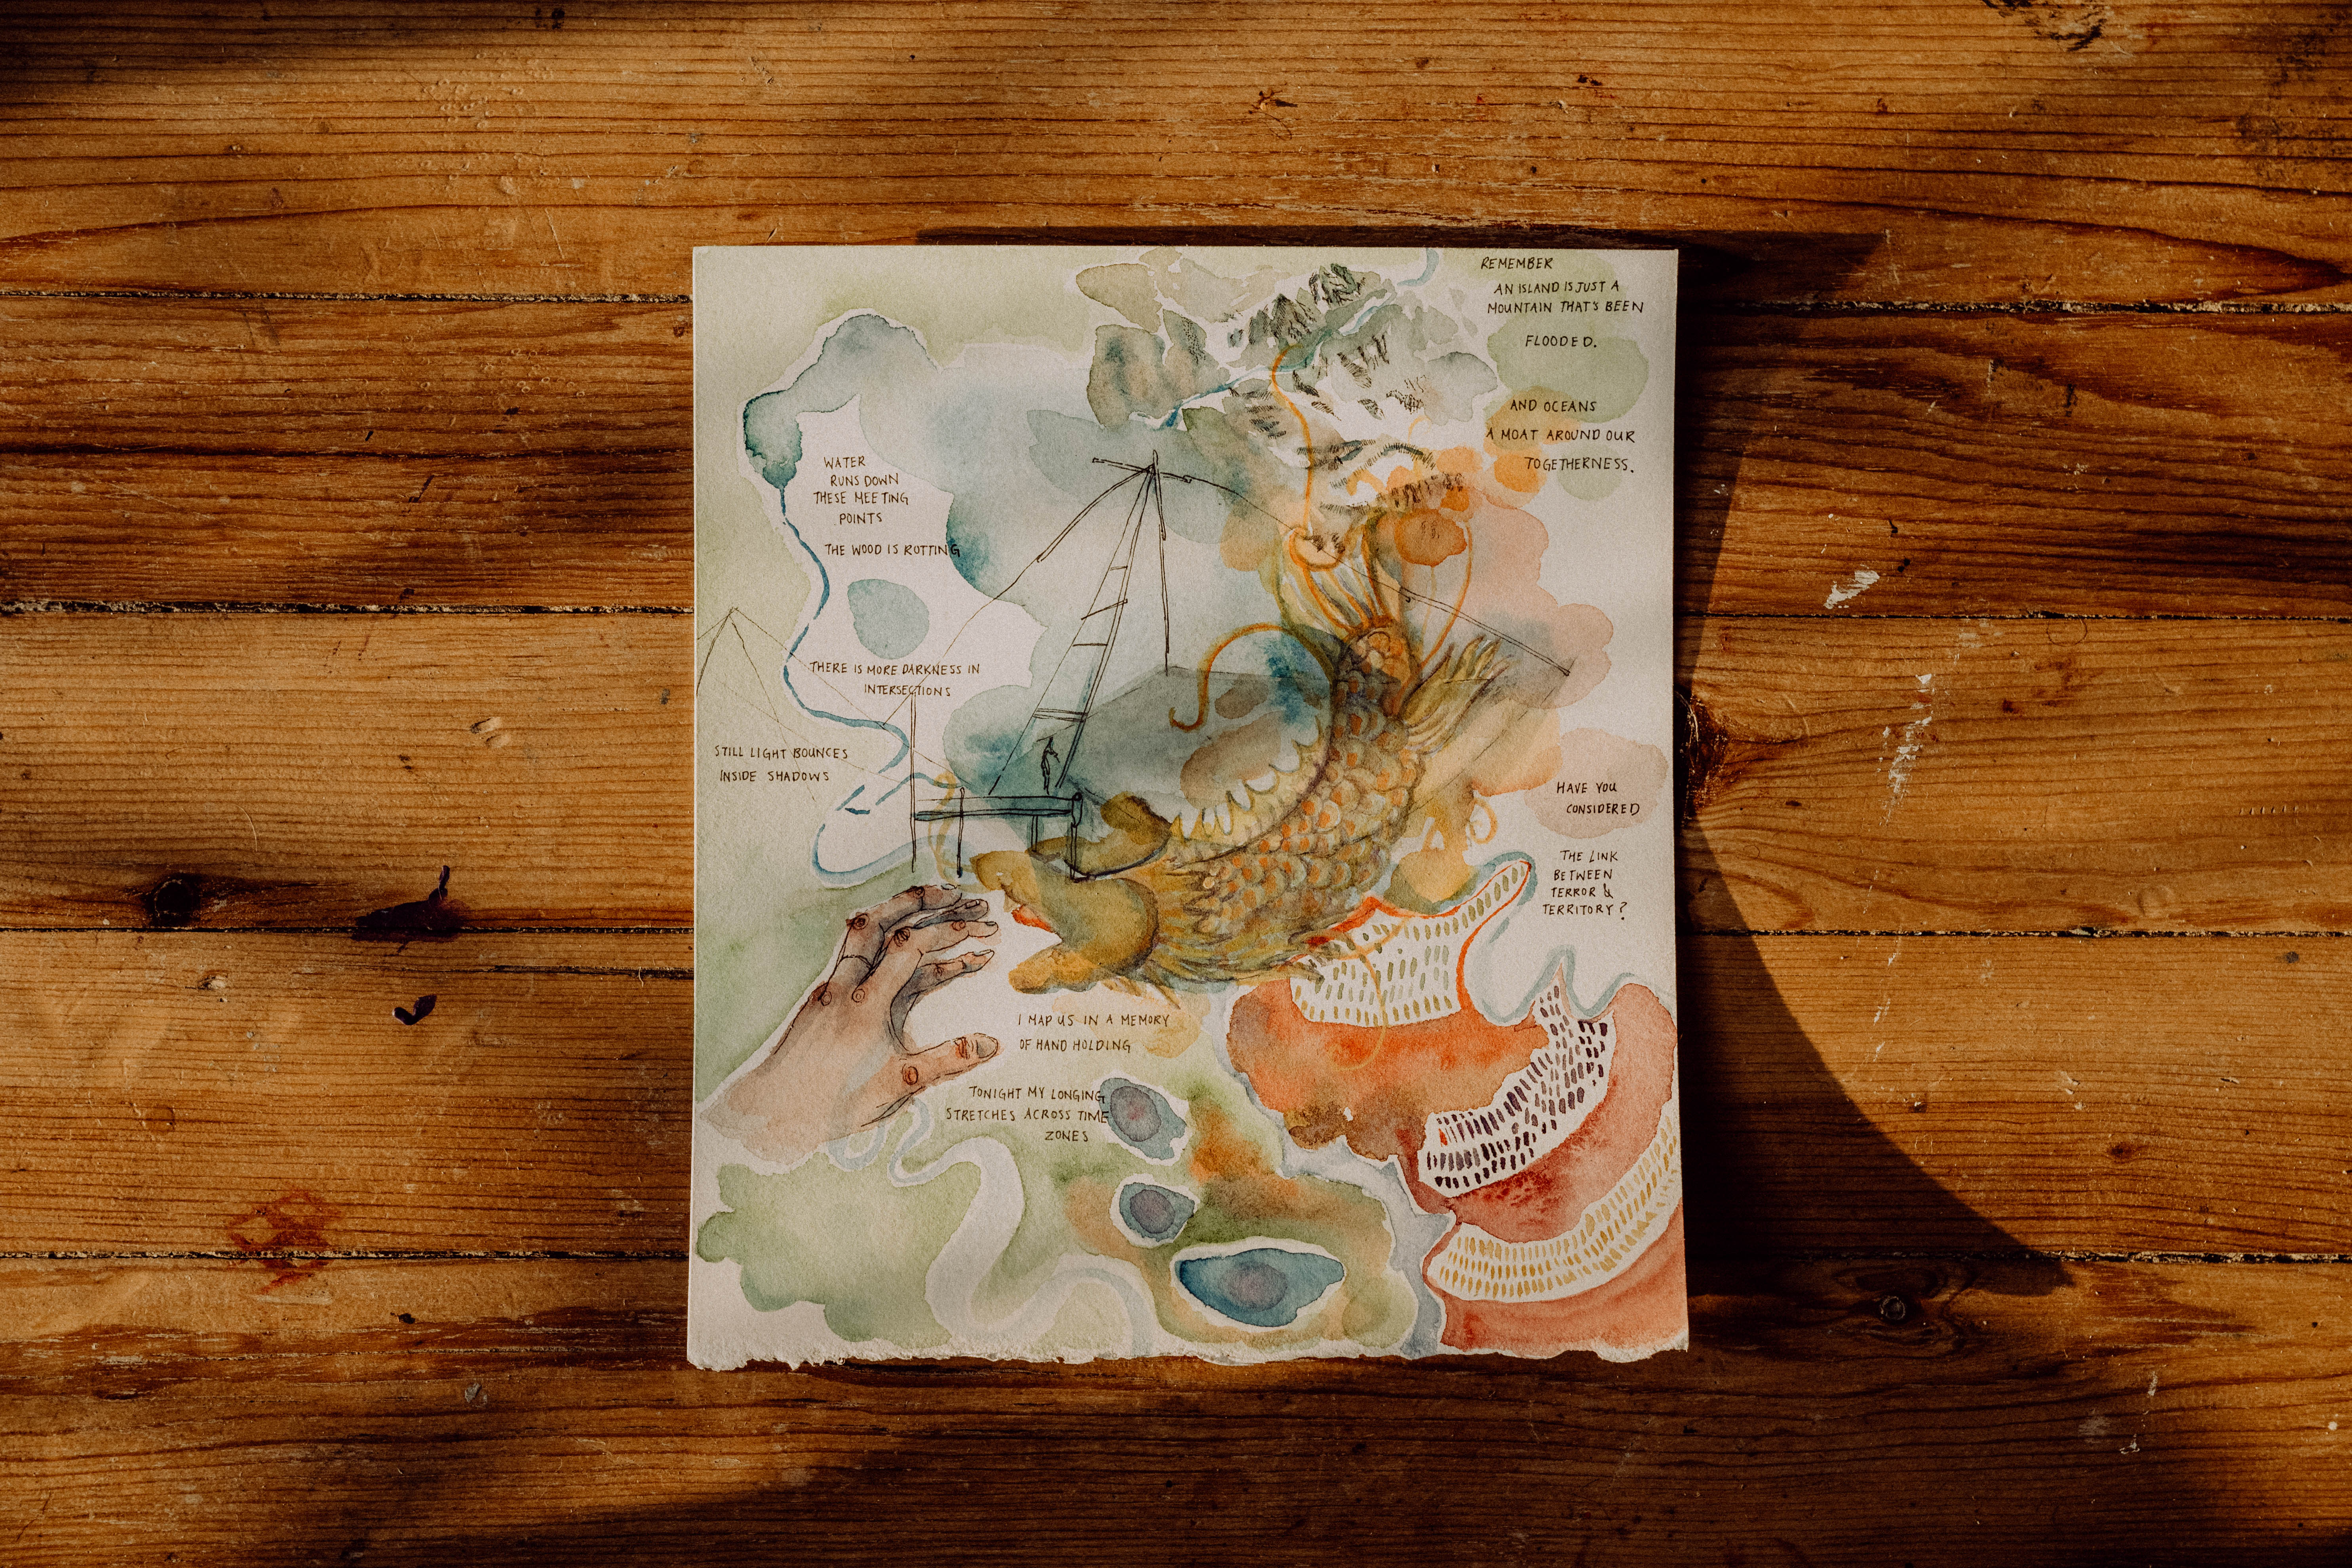 REMEMBER
AN ISLAND IS JUST A
MOUNTAIN THAT'S BEEN
FLOODED.
AND OCEANS
A MOAT AROUND OUR
TOGETHERNESS.
WATER
RUNS DOWN
THESE MEETING
POINTS
THE WOOD IS ROTTING
THERE IS MORE DARKNESS IN
INTERSECTIONS
STILL LIGHT BOUNCES
INSIDE SHADOWS
HAVE YOU
CONSIDERED
THE LINK
BETWEEN
TERROR &
TERRITORY?
I MAP US IN A MEMORY
OF HAND HOLDING
TONIGHT MY LONGING
STRETCHES ACROSS TIME
ZONES